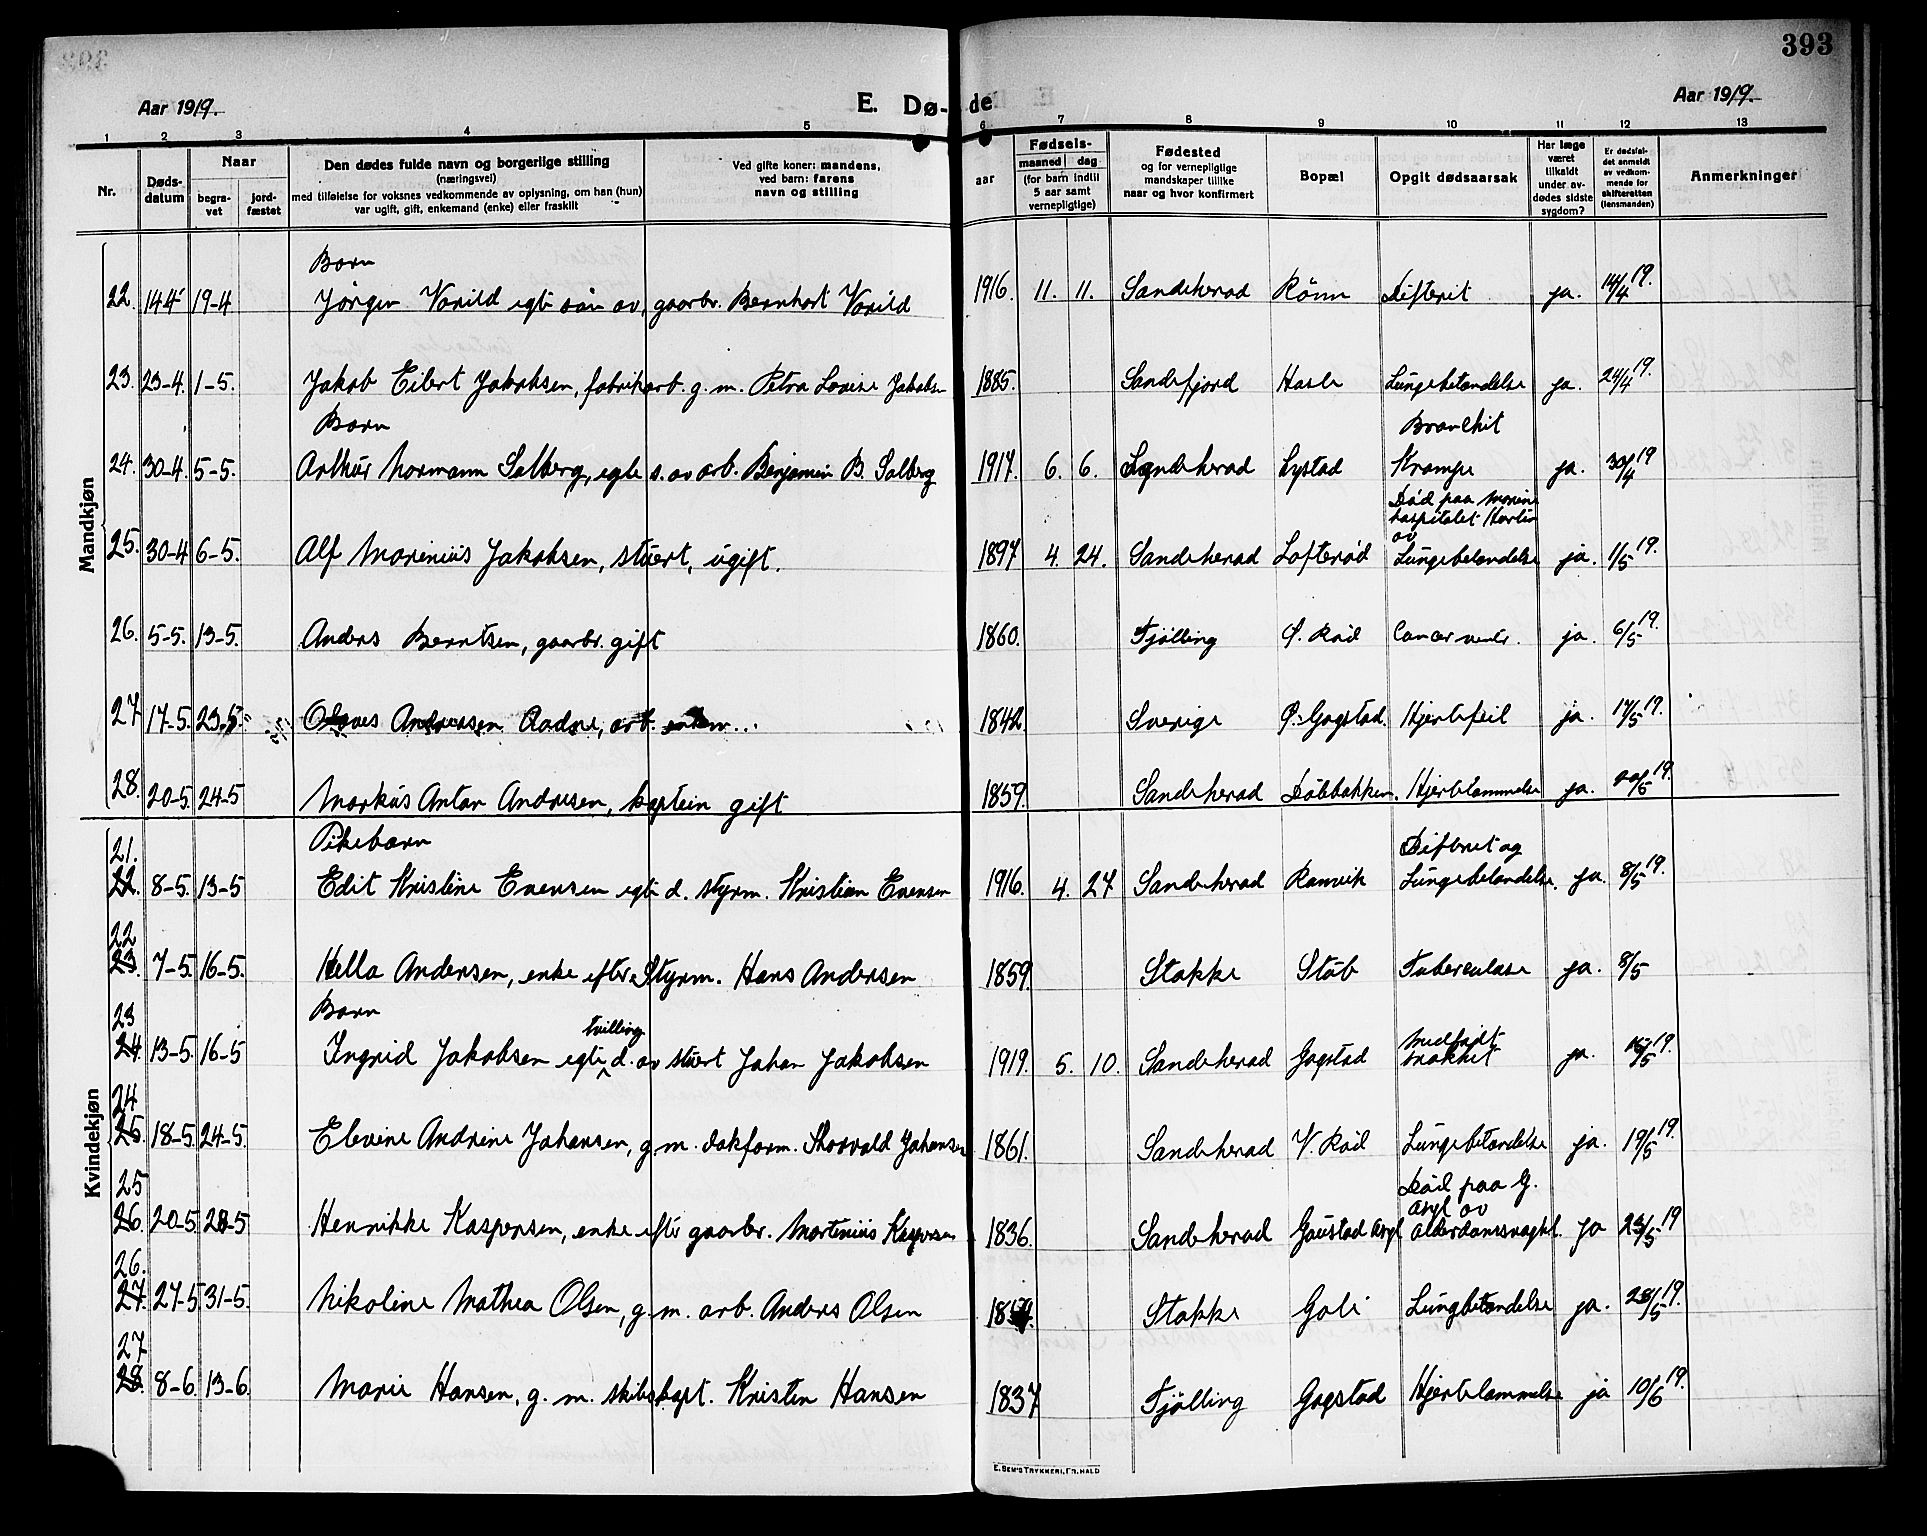 393
Aar 1919.
E. Dø-
de
Aar 1919.
1 2 3 4 5 6 7 8 9 10 11 12 13
Nr.
Døds-
datum
Naar
begra-
vet
jord-
fæstet
Den dødes fulde navn og borgerlige stilling
(næringsvei)
med tilføielse for voksnes vedkommende av oplysning, om han (hun)
var ugift, gift, enkemand (enke) eller fraskilt
Ved gifte koner: mandens,
ved barn: farens
navn og stilling
aar
Fødsels-
maaned dag
(for barn indtil
5 aar samt
vernepligtige)
Fødested
og for vernepligtige
mandskaper tillike
naar og hvor konfirmert
Bopæl
Opgit dødsaarsak
Har læge
været
tilkaldt
under av-
dødes sidste
sygdom?
Er dødsfal-
det anmeldt
av vedkom-
mende for
skifteretten
(lensmanden)
Anmerkninger
Mandkjøn
Barn
22. 14-4 19-4 Jørgen Vorild egte søn av gaarbr. Bernhart Vorild 1916. 11. 11. Sandeherad Rönn Difterit ja. 14/4 19.
23. 23-4. 1-5. Jakob Eilert Jakobsen, fabrikarb. g. m. Petra Lovise Jakobsen 1885. Sandefjord Hasle Lungebetændelse ja. 24/4 19.
Barn
Bronchit
24. 30-4. 5-5. Arthur Normann Solberg, egte s. av arb. Benjamin B. Solberg 1917. 6. 6. Sandeherad Lystad Krampe ja. 30/4 19
Död paa Marine
hospitalet Horten
av
25. 30-4 6-5. Alf Marinius Jakobsen, stuert, ugift. 1897 4. 24. Sandeherad Lofterød Lungebetændelse ja. 1/5 19.
26. 5-5. 13-5. Anders Berntsen, gaarbr. gift 1860. Tjölling Ø. Röd Cancer ventr. ja. 6/5 19.
27 17-5. 23-5. Andersen Aadne, arb. 1842. Sverige Gogstad. Hjertefeil ja. 17/5 19.
28. 20-5. 24-5 Markus Anton Andresen, kaptein gift 1859. Sandeherad Hjertelammelse ja. 20/5 19.
Kvindekjøn
Pikebarn
21.
Difterit og
22. 8-5. 13-5 Edit Kristine Evensen egte d. styrm. Kristian Evensen 1916. 4. 27 Sandeherad Ranvik Lungebetændelse. ja. 8/5 19.
22
23. 7-5. 16-5. Hella Andersen, enke efter Styrm. Hans Andersen 1859. Stokke Stöb Tuberculose ja. 8/5
23
Barn
tvilling
Medfödt
24. 13-5. 16-5 Ingrid Jakobsen egte d. av stuert Johan Jakobsen 1919. 5. 10. Sandeherad Gogstad svakhet ja. 16/5 19.
24
25. 18-5. 24-5. Elevine Andrine Johansen, g. m. dokform. Thorvald Johansen 1861. Sandeherad V. Röd Lungebetændelse ja. 19/5 19.
25
Död paa G.
asyl av
26. 20-5. 28-5 Henrikke Kaspersen, enke efter gaarbr. Martenius Kaspersen 1836. Sandeherad Gaustad Asyl alderdomssvaght. ja 23/5 19
26.
27. 27-5 31-5. Nikoline Mathea Olsen, g. m. arb. Anders Olsen Stokke Goli Lungbetændelse ja. 28/5 19.
27
28. 8-6. 13-6. Marie Hansen, g. m. skibskapt. Kristen Hansen 1837 Tjölling Gogstad Hjertelammelse ja 10/6 19.
E. SEM'S TRYKKERI, FR.HALD